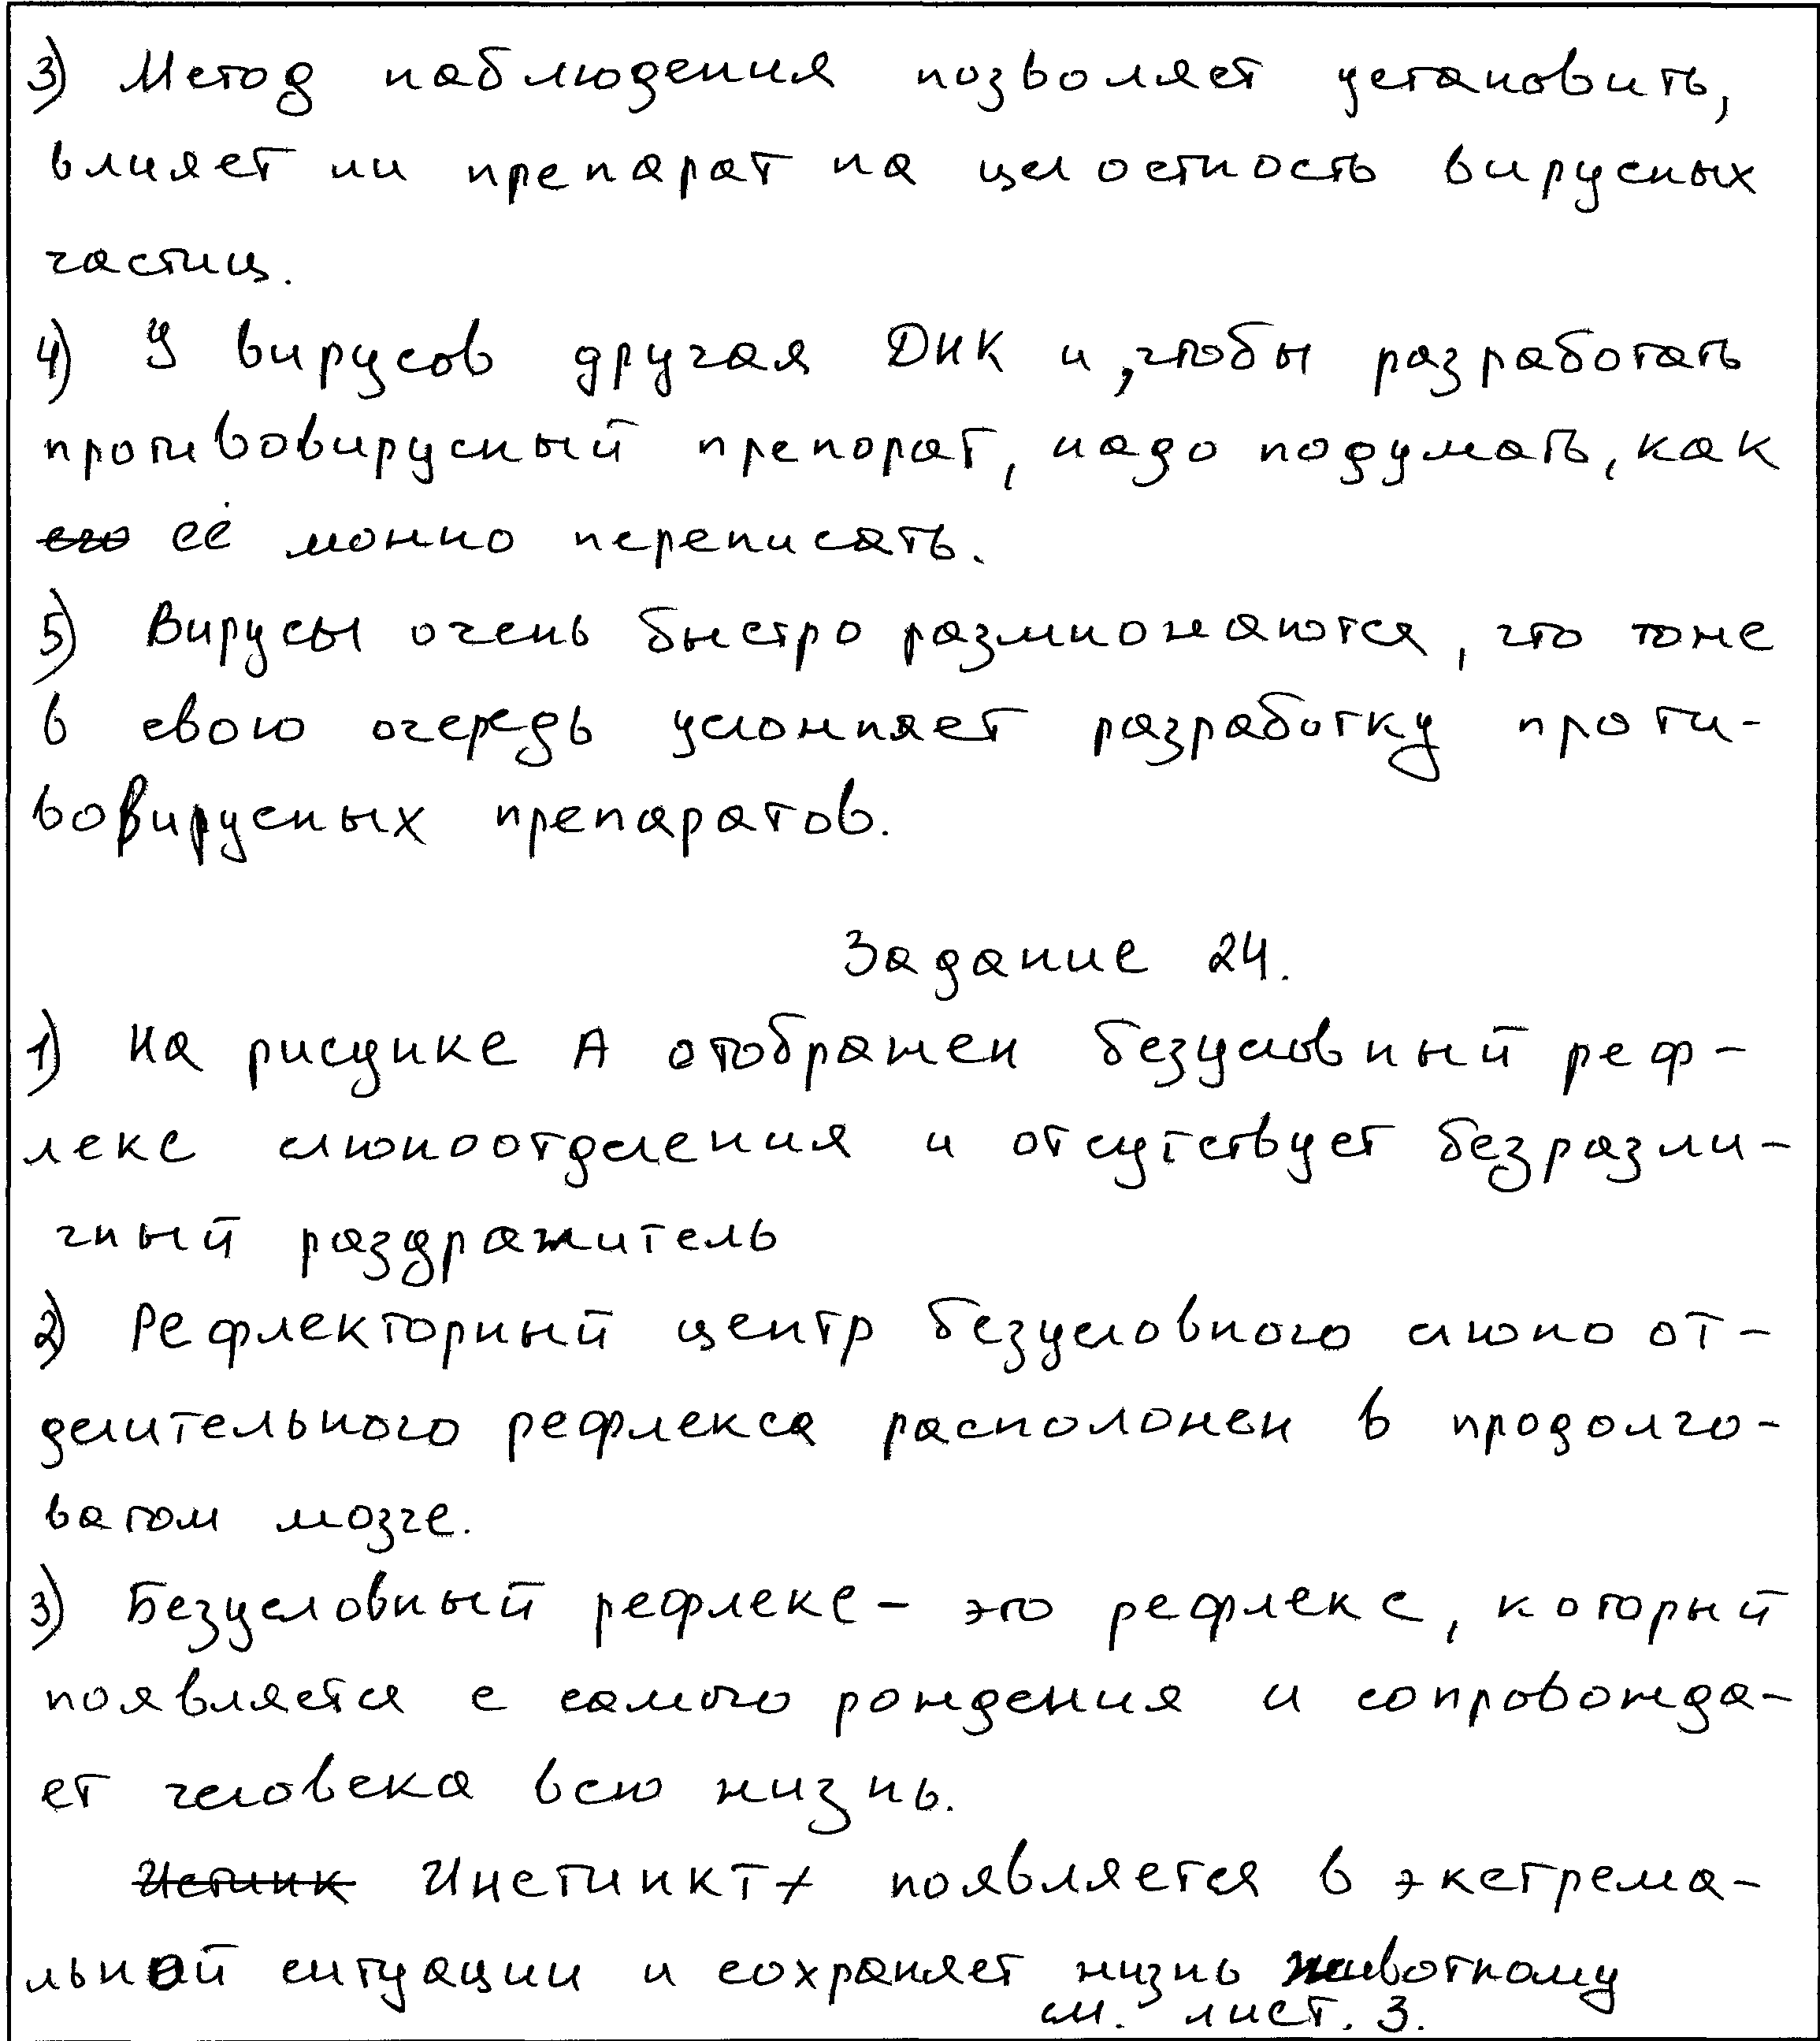 3) Метод наблюдения позволяет установить,
влияет ли препарат на целостность вирусных
частиц.
4) У вирусов другая ДНК и, чтобы разработать
противовирусный препорат, надо подумать, как
его её можно переписать.
5) Вирусы очень быстро размножаются, что тоже
в свою очередь усложняет разработку проти-
вовирусных препаратов.
Задание 24.
1) На рисунке А отображен безусловный реф-
лекс слюноотделения и отсутствует безразли-
чный раздражитель
2) Рефлекторный центр безусловного слюноот-
делительного рефлекса расположен в продолго-
ватом мозге.
3) Безусловный рефлекс - это рефлекс, который
появляется с самого рождения и сопровожда-
ет человека всю жизнь.
Истинк Инстинкт появляется в экстрема-
льной ситуации и сохраняет жизнь животному
см. лист. 3.